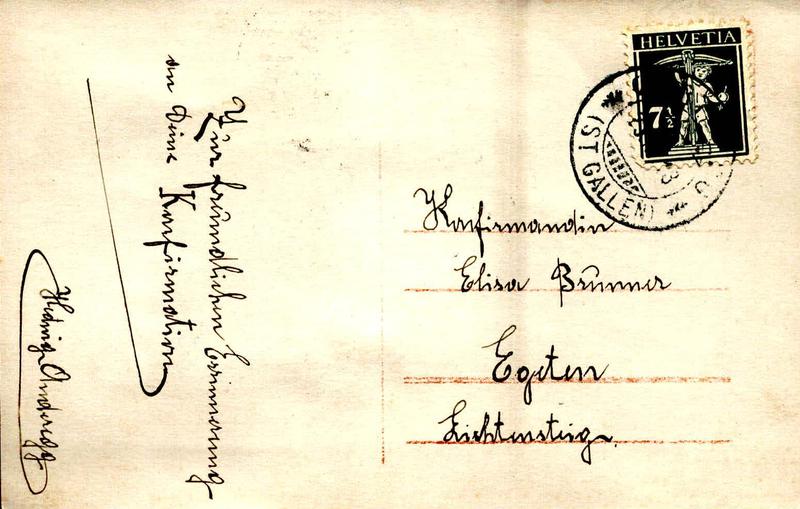 HELVETIA
7½
(ST GALLEN)
Zur freundlichen Erinnerung
an Deine Konfirmation
Hedwig Anderegg
Konfirmandin
Elisa Brunner
Egeten
Lichtensteig.